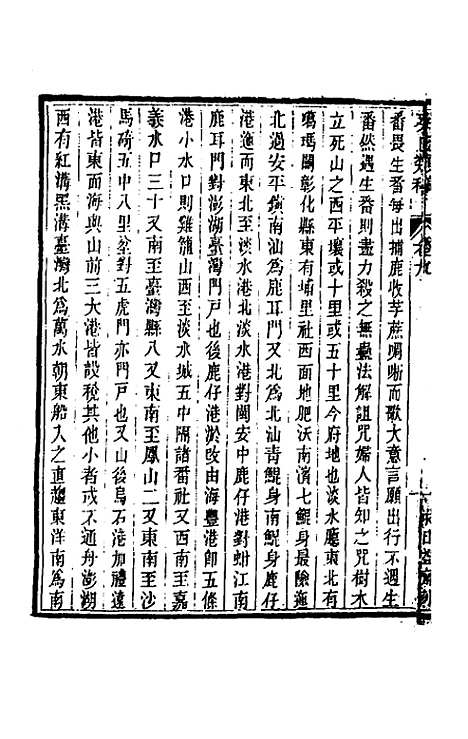 番畏生番每出捕鹿收芋蔗鳴嘶而歌大意言願出行不遇生
番然遇生番則盡力殺之無蠱法解詛咒婦人皆知之咒樹木
立死山之西平壤或十里或五十里今府地也淡水廳東北有
噶瑪闌彰化縣東有埔里社西面地肥沃南濱七鯤身最險迤
北過安平鎮南汕為鹿耳門又北為北汕青鯤身南鯤身鹿仔
港迤而東北至淡水港北淡水港對閩安中鹿仔港對蚶江南
鹿耳門對澎湖臺灣門戸也後鹿仔港淤改由海豐港卽五條
港小水口則雞籠山西至淡水城五中隔諸番社又西至嘉
義水口三十又南至臺灣縣八又東南至鳳山二又東南至沙
馬碕五中八里坌對五虎門亦門戸也又山後烏石港加禮遠
港皆東面海與山前三大港皆設稅其他小者或不通舟澎湖
西有紅溝黑溝臺灣北為萬水朝東船入之直趨東洋南為南